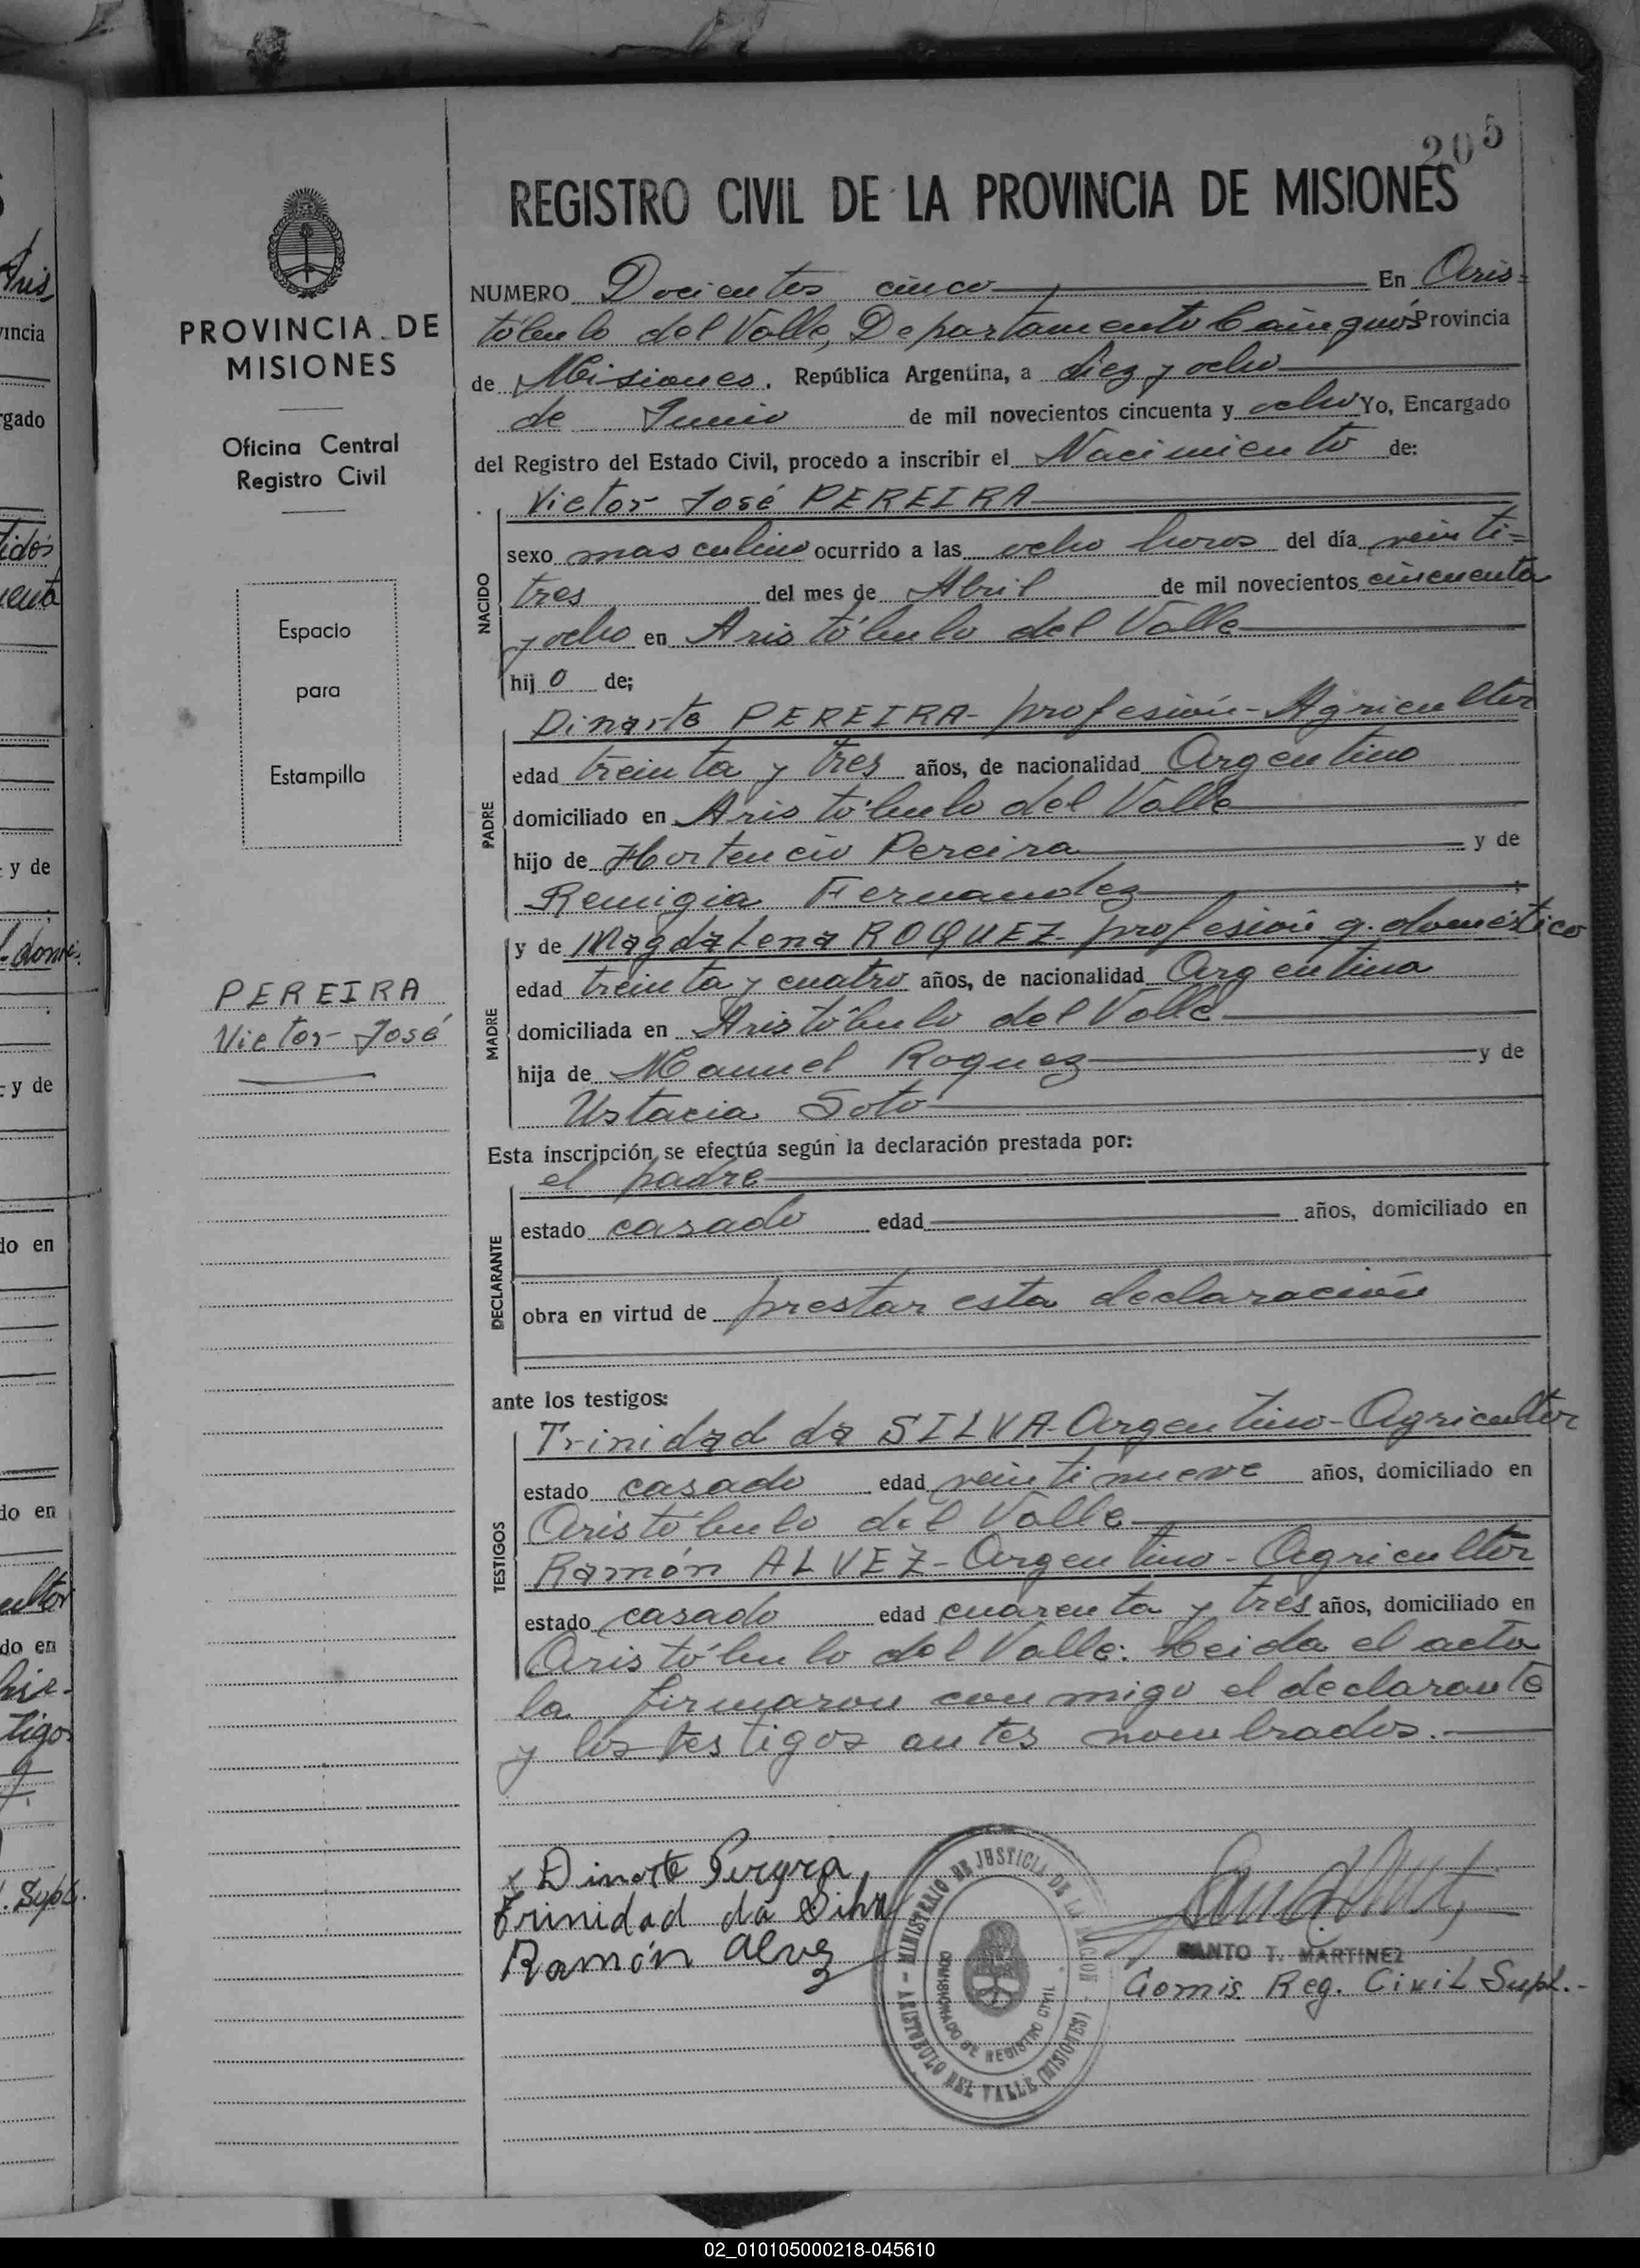 205
REGISTRO CIVIL DE LA PROVINCIA DE MISIONES
PROVINCIA DE
MISIONES
Oficina Central
Registro Civil
Espacio
para
Estampilla
PEREIRA
Victor José
NUMERO Docientos cinco En Aris=
tóbulo del Valle, Departamento Cainguás Provincia
de Misiones. República Argentina, a diez y ocho
de Junio de mil novecientos cincuenta y ocho Yo, Encargado
del Registro del Estado Civil, procedo a inscribir el Nacimiento de:
NACIDO
Victor José PEREIRA
sexo masculino ocurrido a las ocho horas del día veinti=
tres del mes de Abril de mil novecientos cincuenta
y ocho en Aristóbulo del Valle
hijo de;
PADRE
Dinarte PEREIRA- profesión- Agricultor
edad treinta y tres años, de nacionalidad Argentino
domiciliado en Aristóbulo del Valle
hijo de Hortencio Pereira y de
Remigia Fernandez ;
MADRE
y de Magdalena ROQUEZ- profesión q. doméstico
edad treinta y cuatro años, de nacionalidad Argentina
domiciliada en Aristóbulo del Valle
hija de Manuel Roquez y de
Ustacia Soto
Esta inscripción se efectúa según la declaración prestada por:
DECLARANTE
el padre
estado casado edad años, domiciliado en
obra en virtud de prestar esta declaración
ante los testigos:
TESTIGOS
Trinidad da SILVA- Argentino- Agricultor
estado casado edad veintinueve años, domiciliado en
Aristóbulo del Valle
Ramón ALVEZ- Argentino- Agricultor
estado casado edad cuarenta y tres años, domiciliado en
Aristóbulo del Valle: Leida el acta
la firmaron conmigo el declarante
y los testigos antes nombrados.-
x Dinarte Pereyra
Trinidad da Silva
Ramón Alvez
MINISTERIO DE JUSTICIA DE LA NACION - ARISTOBULO DEL VALLE (MISIONES) -
COMISIONADO DE REGISTRO CIVIL
SANTO T. MARTINEZ
Comis. Reg. Civil Supl.-
02_010105000218-045610